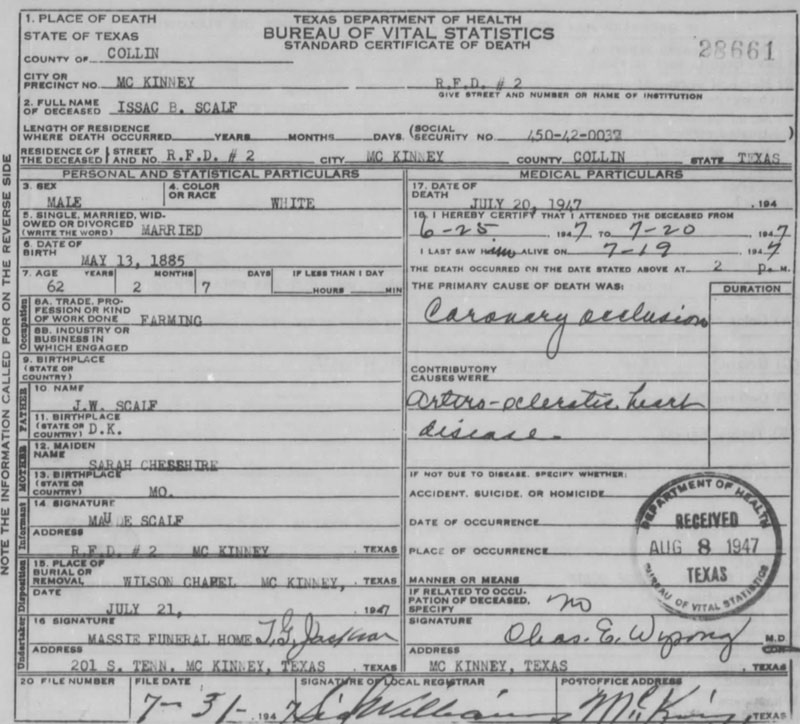 1. PLACE OF DEATH
STATE OF TEXAS
COUNTY OF COLLIN
TEXAS DEPARTMENT OF HEALTH
BUREAU OF VITAL STATISTICS
STANDARD CERTIFICATE OF DEATH
28661
CITY OR
PRECINCT NO. MC KINNEY R.F.D. # 2
GIVE STREET AND NUMBER OR NAME OF INSTITUTION
2. FULL NAME
OF DECEASED ISSAC B. SCALF
LENGTH OF RESIDENCE
WHERE DEATH OCCURRED YEARS MONTHS DAYS (SOCIAL SECURITY NO. 450-42-0037 )
RESIDENCE OF THE DECEASED { STREET AND NO. R.F.D. # 2 CITY MC KINNEY COUNTY COLLIN STATE TEXAS
NOTE THE INFORMATION CALLED FOR ON THE REVERSE SIDE
PERSONAL AND STATISTICAL PARTICULARS
3. SEX
MALE
4. COLOR
OR RACE WHITE
5. SINGLE, MARRIED, WID-
OWED OR DIVORCED
(WRITE THE WORD) MARRIED
6. DATE OF
BIRTH MAY 13, 1885
7. AGE YEARS MONTHS DAYS IF LESS THAN 1 DAY
62 2 7 HOURS MIN
Occupation
8A. TRADE, PRO-
FESSION OR KIND
OF WORK DONE FARMING
8B. INDUSTRY OR
BUSINESS IN
WHICH ENGAGED
9. BIRTHPLACE
(STATE OR
COUNTRY)
FATHER
10. NAME
J.W. SCALF
11. BIRTHPLACE
(STATE OR
COUNTRY) D.K.
MOTHER
12. MAIDEN
NAME SARAH CHESSHIRE
13. BIRTHPLACE
(STATE OR
COUNTRY) MO.
Informant
14 SIGNATURE
MAUDE SCALF
ADDRESS
R.F.D. # 2 MC KINNEY , TEXAS
Disposition
15. PLACE OF
BURIAL OR
REMOVAL WILSON CHAPEL MC KINNEY, , TEXAS
DATE
JULY 21, 1947
Undertaker
16 SIGNATURE
MASSIE FUNERAL HOME T.G. Jackson
ADDRESS
201 S. TENN. MC KINNEY, TEXAS , TEXAS
MEDICAL PARTICULARS
17. DATE OF
DEATH JULY 20, 1947 , 194
18. I HEREBY CERTIFY THAT I ATTENDED THE DECEASED FROM
6-25 1947 TO 7-20 1947
I LAST SAW him ALIVE ON 7-19 1947
THE DEATH OCCURRED ON THE DATE STATED ABOVE AT 2 p. M.
THE PRIMARY CAUSE OF DEATH WAS: DURATION
Coronary occlusion
CONTRIBUTORY
CAUSES WERE
Arterio-sclerotic heart
disease.
IF NOT DUE TO DISEASE, SPECIFY WHETHER:
ACCIDENT, SUICIDE, OR HOMICIDE
DATE OF OCCURRENCE
PLACE OF OCCURRENCE
MANNER OR MEANS
IF RELATED TO OCCU-
PATION OF DECEASED,
SPECIFY no
DEPARTMENT OF HEALTH
RECEIVED
AUG 8 1947
TEXAS
BUREAU OF VITAL STATISTICS
SIGNATURE
Chas. E. Wysong M.D
ADDRESS
MC KINNEY, TEXAS , TEXAS
20 FILE NUMBER
FILE DATE
7-31- 1947
SIGNATURE OF LOCAL REGISTRAR
Sid Williams
POSTOFFICE ADDRESS
TEXAS